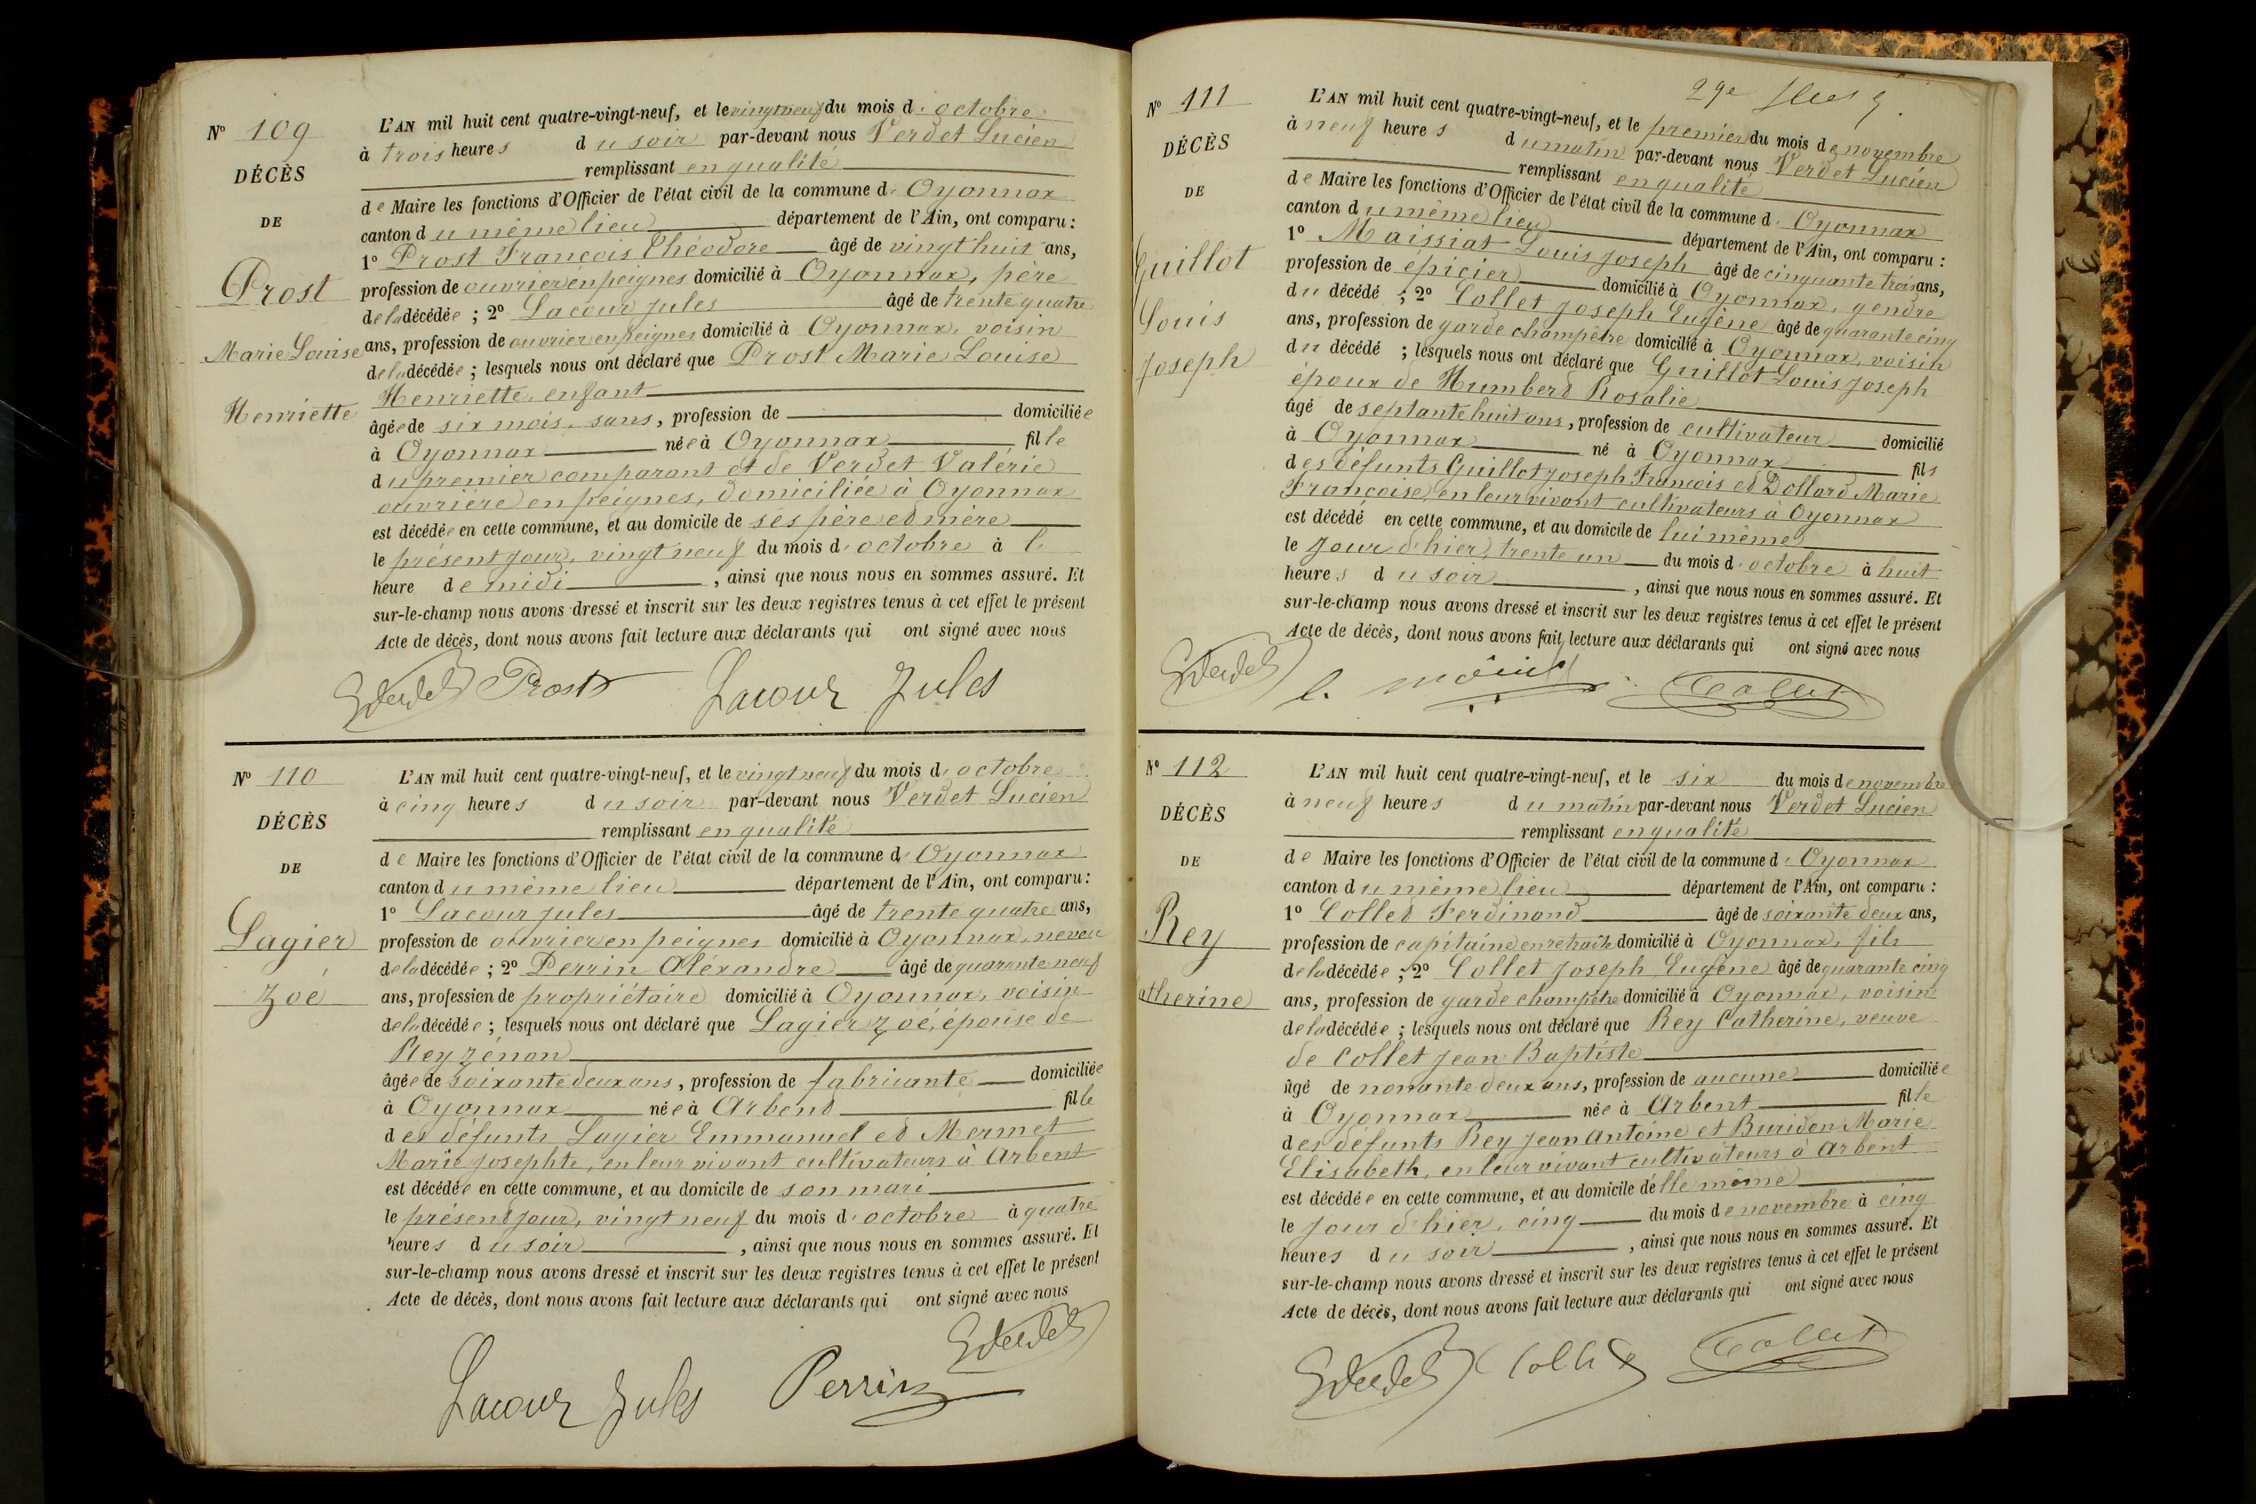 Nº 109
DÉCÈS
DE
Prost
Marie Louise
Henriette
L'AN mil huit cent quatre-vingt-neuf, et le vingt neuf du mois d'octobre
à trois heures du soir par-devant nous Verdet Lucien
remplissant en qualité
de Maire les fonctions d'Officier de l'état civil de la commune d'Oyonnax
canton du même lieu département de l'Ain, ont comparu :
1º Prost François Théodore âgé de vingt huit ans,
profession de ouvrier en peignes domicilié à Oyonnax, père
de la décédée ; 2º Lacour Jules âgé de trente quatre
ans, profession de ouvrier en peignes domicilié à Oyonnax, voisin
de la décédée ; lesquels nous ont déclaré que Prost Marie Louise
Henriette, enfant
âgée de six mois, sans, profession de domiciliée
à Oyonnax née à Oyonnax fille
du premier comparant et de Verdet Valérie
ouvrière en peignes, domiciliée à Oyonnax
est décédée en cette commune, et au domicile de ses père et mère
le présent jour, vingt neuf du mois d'octobre à l'
heure de midi, ainsi que nous nous en sommes assuré. Et
sur-le-champ nous avons dressé et inscrit sur les deux registres tenus à cet effet le présent
Acte de décès, dont nous avons fait lecture aux déclarants qui ont signé avec nous
Verdet Prost Lacour Jules
Nº 110
DÉCÈS
DE
Lagier
Zoé
L'AN mil huit cent quatre-vingt-neuf, et le vingt neuf du mois d'octobre
à cinq heures du soir par-devant nous Verdet Lucien
remplissant en qualité
de Maire les fonctions d'Officier de l'état civil de la commune d'Oyonnax
canton du même lieu département de l'Ain, ont comparu :
1º Lacour Jules âgé de trente quatre ans,
profession de ouvrier en peignes domicilié à Oyonnax, neveu
de la décédée ; 2º Perrin Aléxandre âgé de quarante neuf
ans, profession de propriétaire domicilié à Oyonnax, voisin
de la décédée ; lesquels nous ont déclaré que Lagier Zoé, épouse de
Rey Zénon
âgée de soixante deux ans, profession de fabricante domiciliée
à Oyonnax née à Arbend fille
des défunts Lagier Emmanuel et Mermet
Marie Josephte, en leur vivant cultivateurs à Arbent
est décédée en cette commune, et au domicile de son mari
le présent jour, vingt neuf du mois d'octobre à quatre
heures du soir, ainsi que nous nous en sommes assuré. Et
sur-le-champ nous avons dressé et inscrit sur les deux registres tenus à cet effet le présent
Acte de décès, dont nous avons fait lecture aux déclarants qui ont signé avec nous
Verdet
Lacour Jules Perrin
29e
Nº 111
DÉCÈS
DE
Guillot
Louis
Joseph
L'AN mil huit cent quatre-vingt-neuf, et le premier du mois de novembre
à neuf heures du matin par-devant nous Verdet Lucien
remplissant en qualité
de Maire les fonctions d'Officier de l'état civil de la commune d'Oyonnax
canton du même lieu département de l'Ain, ont comparu :
1º Maissiat Louis Joseph âgé de cinquante trois ans,
profession de épicier domicilié à Oyonnax, gendre
du décédé ; 2º Collet Joseph Eugène âgé de quarante cinq
ans, profession de garde champêtre domicilié à Oyonnax, voisin
du décédé ; lesquels nous ont déclaré que Guillot Louis Joseph
époux de Humberd Rosalie
âgé de septante huit ans, profession de cultivateur domicilié
à Oyonnax né à Oyonnax fils
des défunts Guillot Joseph François et Dollard Marie
Françoise, en leur vivant cultivateurs à Oyonnax
est décédé en cette commune, et au domicile de lui même
le jour d'hier, trente un du mois d'octobre à huit
heures du soir, ainsi que nous nous en sommes assuré. Et
sur-le-champ nous avons dressé et inscrit sur les deux registres tenus à cet effet le présent
Acte de décès, dont nous avons fait lecture aux déclarants qui ont signé avec nous
Verdet L. Collet
Nº 112
DÉCÈS
DE
Rey
atherine
L'AN mil huit cent quatre-vingt-neuf, et le six du mois de novembre
à neuf heures du matin par-devant nous Verdet Lucien
remplissant en qualité
de Maire les fonctions d'Officier de l'état civil de la commune d'Oyonnax
canton du même lieu département de l'Ain, ont comparu :
1º Colled Ferdinand âgé de soixante deux ans,
profession de capitaine en retraite domicilié à Oyonnax, fils
de la décédée ; 2º Collet Joseph Eugène âgé de quarante cinq
ans, profession de garde champêtre domicilié à Oyonnax, voisin
de la décédée ; lesquels nous ont déclaré que Rey Catherine, veuve
de Collet Jean Baptiste
âgé de nonante deux ans, profession de aucune domiciliée
à Oyonnax née à Arbent fille
des défunts Rey Jean Antoine et Buridon Marie
Elisabeth, en leur vivant cultivateurs à Arbent
est décédée en cette commune, et au domicile d'elle même
le jour d'hier, cinq du mois de novembre à cinq
heures du soir, ainsi que nous nous en sommes assuré. Et
sur-le-champ nous avons dressé et inscrit sur les deux registres tenus à cet effet le présent
Acte de décès, dont nous avons fait lecture aux déclarants qui ont signé avec nous
Verdet Collet Collet